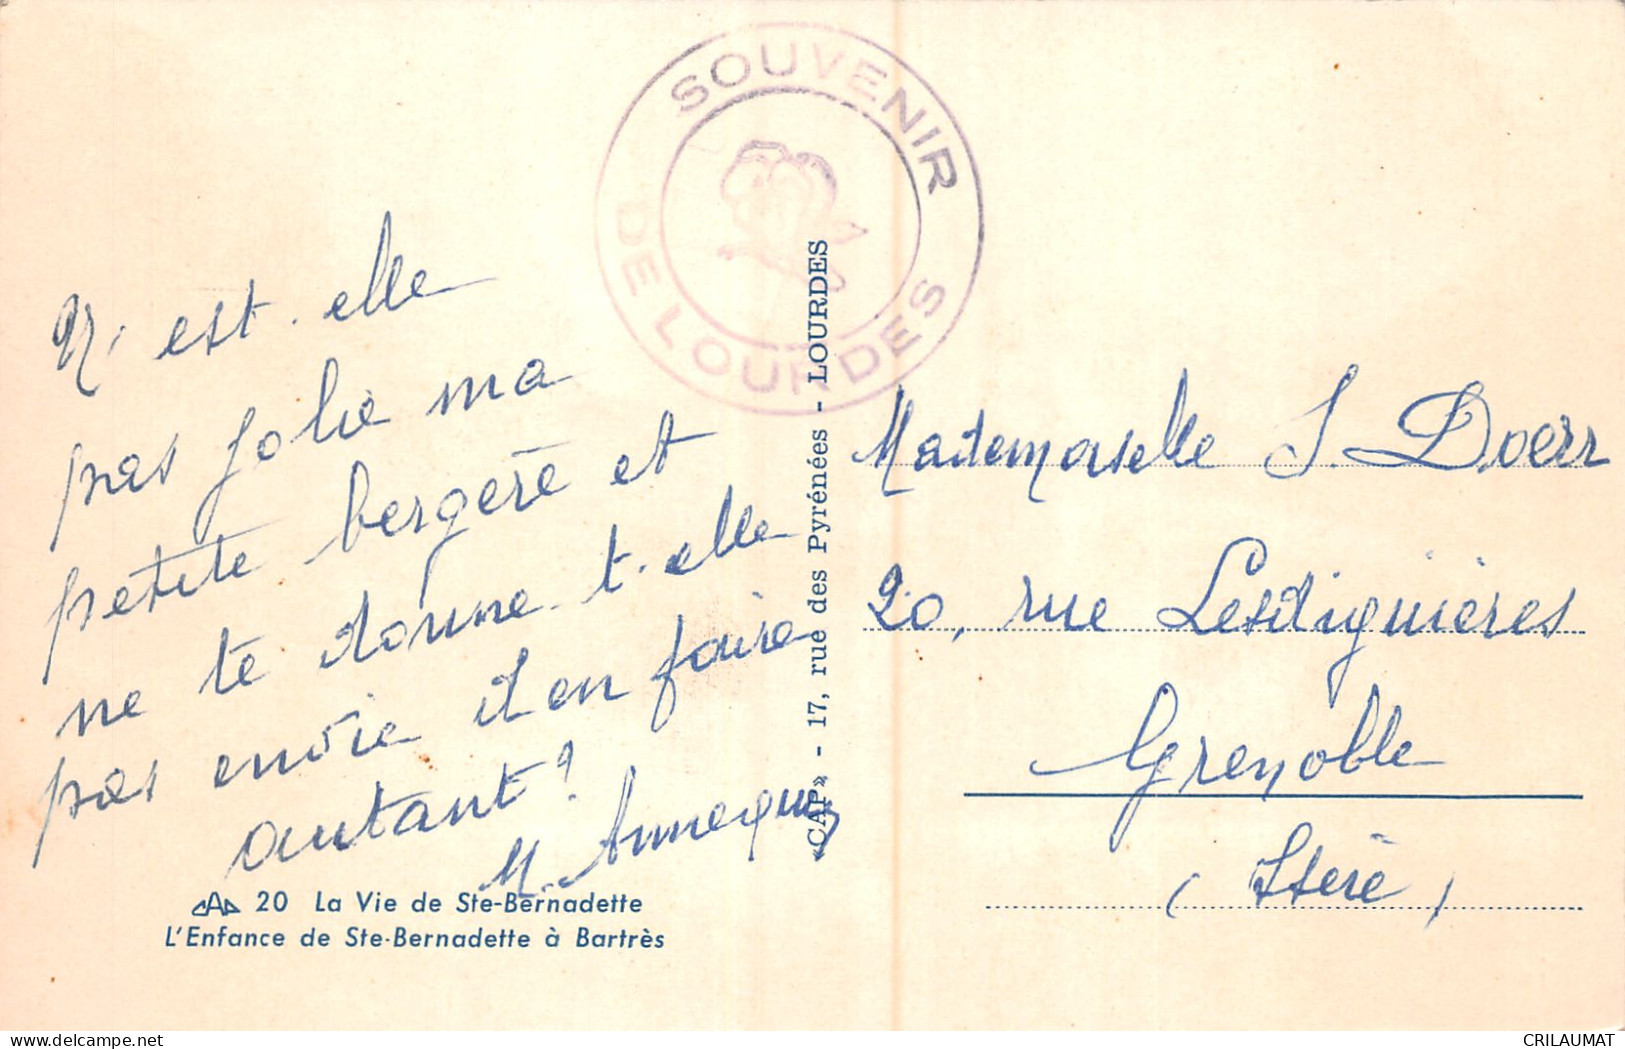 SOUVENIR
DE LOURDES
N'est-elle
pas jolie ma
petite bergère et
ne te donne-t-elle
pas envie d'en faire
autant?
M.
CAP 20 La Vie de Ste-Bernadette
L'Enfance de Ste-Bernadette à Bartrès
«CAP» - 17, rue des Pyrénées - LOURDES
Mademoiselle S. Doerr
20, rue Lesdiguières
Grenoble
(Isère)
delcampe.net
CRILAUMAT